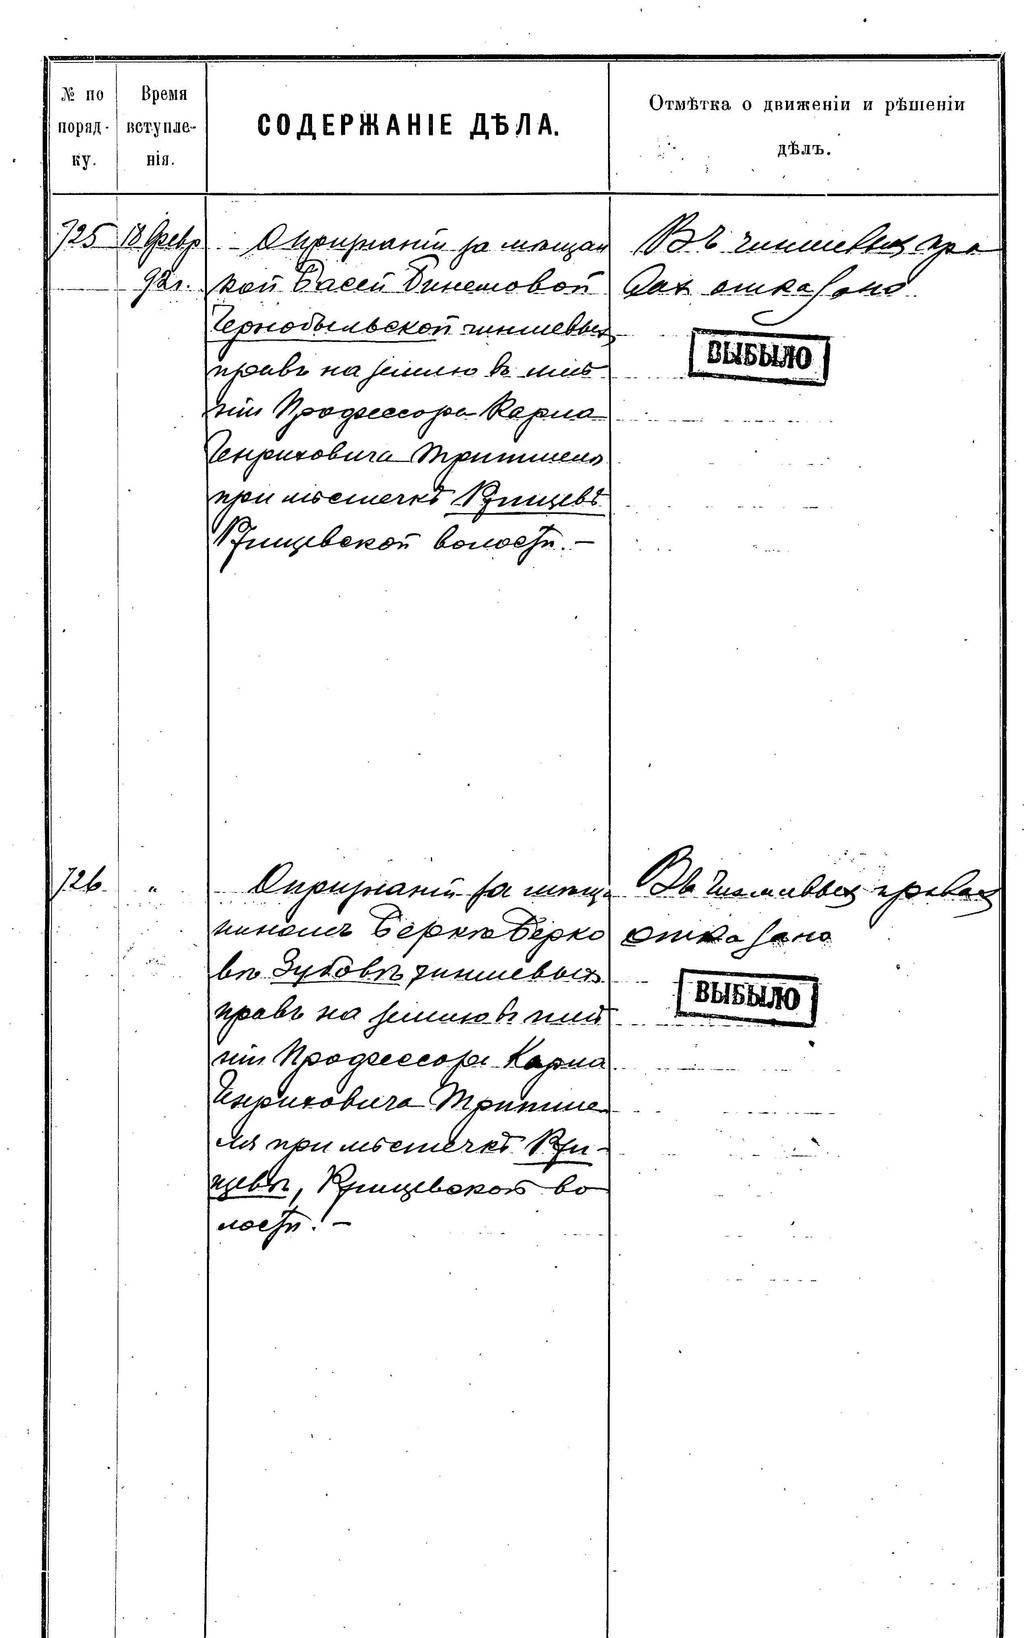 № по поряд- ку.
Время вступле- нія.
СОДЕРЖАНІЕ ДѢЛА.
Отмѣтка о движеніи и рѣшеніи
дѣлъ.
725
18 Февр
92 г.
О признаніи за мѣщан
кой Басей
Чернобыльской чиншевыхъ
правъ на землю въ имѣ
ніи Профессора Карла
Генриховича Тритшеля
при мѣстечкѣ Ржищевѣ
Ржищевской волости. —
Въ чиншевыхъ пра
вах отказано
ВЫБЫЛО
726
"
О признаніи за мѣща
ниномъ Беркѣ Берко
въ Зубовъ чиншевыхъ
правъ на землю въ имѣ
ніи Профессора Карла
Генриховича Тритше
ля при мѣстечкѣ Ржи-
щевѣ, Ржищевской во
лости. —
Въ чиншевыхъ правах
отказано
ВЫБЫЛО